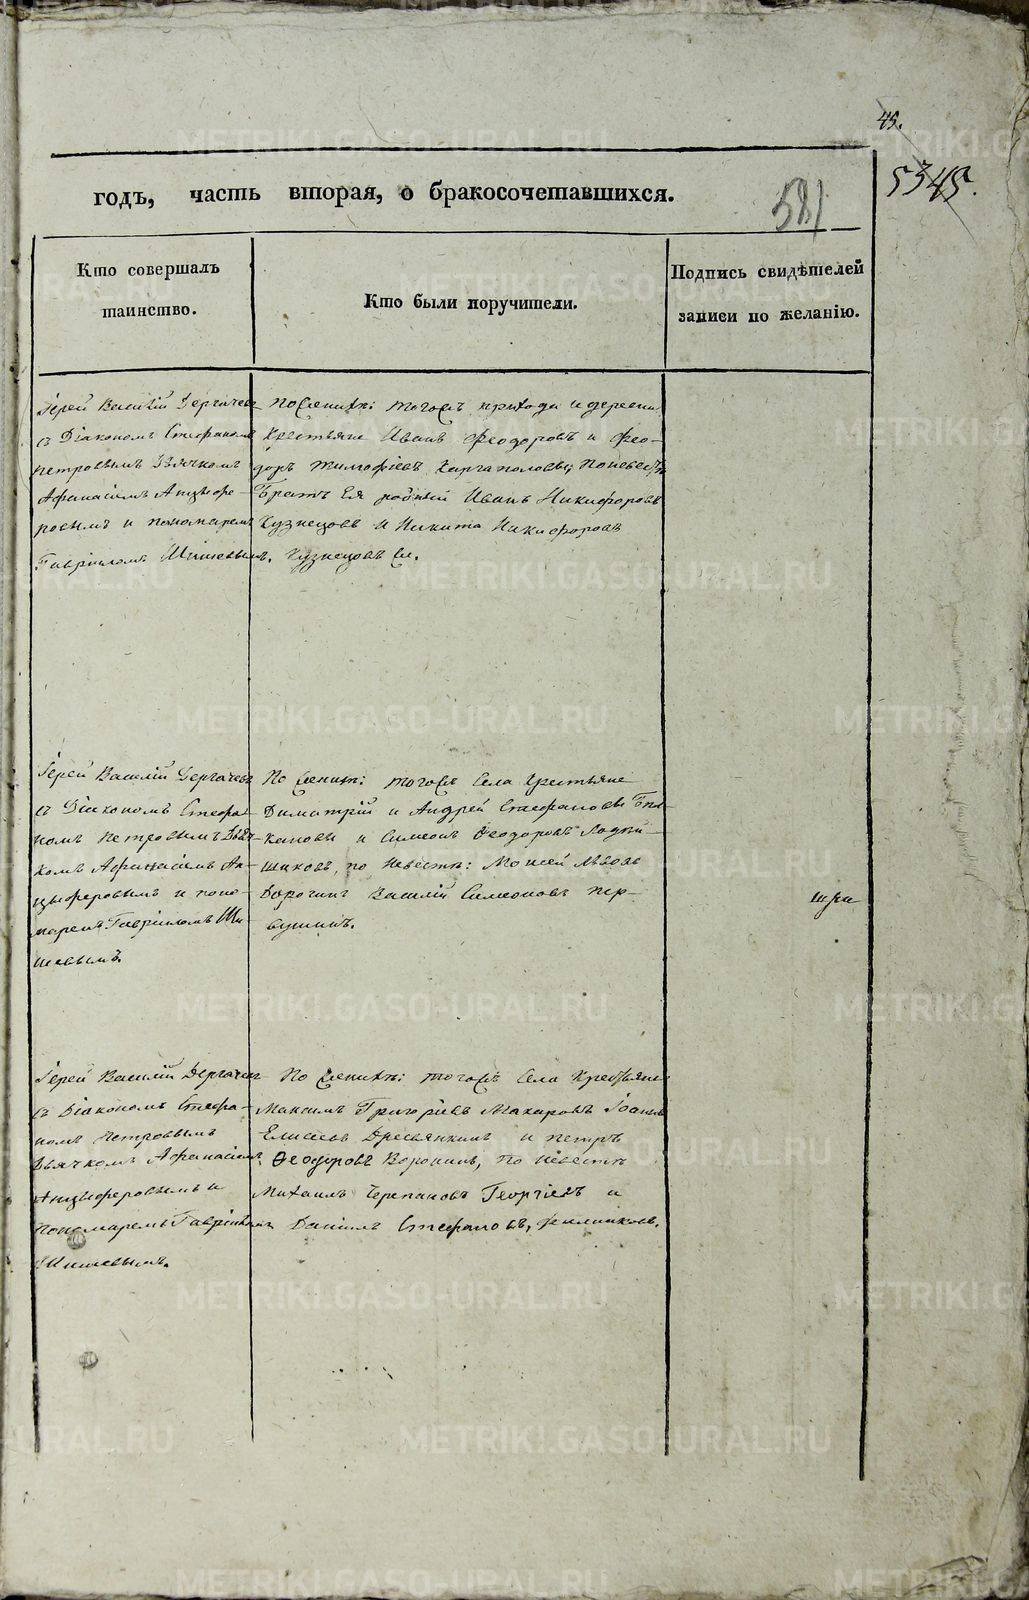 45.
5345.
годъ, часть вторая, о бракосочетавшихся.
581
Кто совершалъ
таинство.
Кто были поручители.
Подпись свидѣтелей
записи по желанію.
Іерей Василій Дергачевъ
съ Діакономъ Стефаномъ
Петровымъ Дьячкомъ
Афанасіемъ Анцыфе-
ровымъ и пономаремъ
Гавріиломъ Шишевымъ.
По женихѣ: тогожъ прихода и деревни
Крестьяне Иванъ Феодоровъ и Фео-
доръ Тимофіевъ Каргаполовы; По невестѣ
Братъ Ея родный Иванъ Никифоровъ
Кузнецовъ и Никита Никифоровъ
Кузнецовъ же.
Іерей Василій Дергачевъ
съ Діакономъ Стефа-
номъ Петровымъ Дьяч-
комъ Афанасіемъ Ан-
цыферовымъ и поно-
маремъ Гавріиломъ Ши-
шевымъ.
По женихѣ: тогожъ Села Крестьяне
Димитрій и Андрей Стефановы
и Симеонъ Феодоровъ
по невестѣ: Моисей Львовъ
Дорочинъ Василій Симеоновъ Пер-
вушинъ.
Іерей Василій Дергачевъ
съ Діакономъ Стефа-
номъ Петровымъ
Дьячкомъ Афанасіемъ
Анцыферовымъ и
Пономаремъ Гавріиломъ
Шишевымъ.
По женихѣ: тогожъ Села Крестьяне
Максимъ Григоріевъ Макаровъ Іоаннъ
Елисеевъ Дресвянкинъ и Петръ
Феодоровъ Воронинъ, по невестѣ
Михаилъ Черепановъ Георгіевъ и
Даніилъ Стефановъ,
METRIKI.GASO-URAL.RU